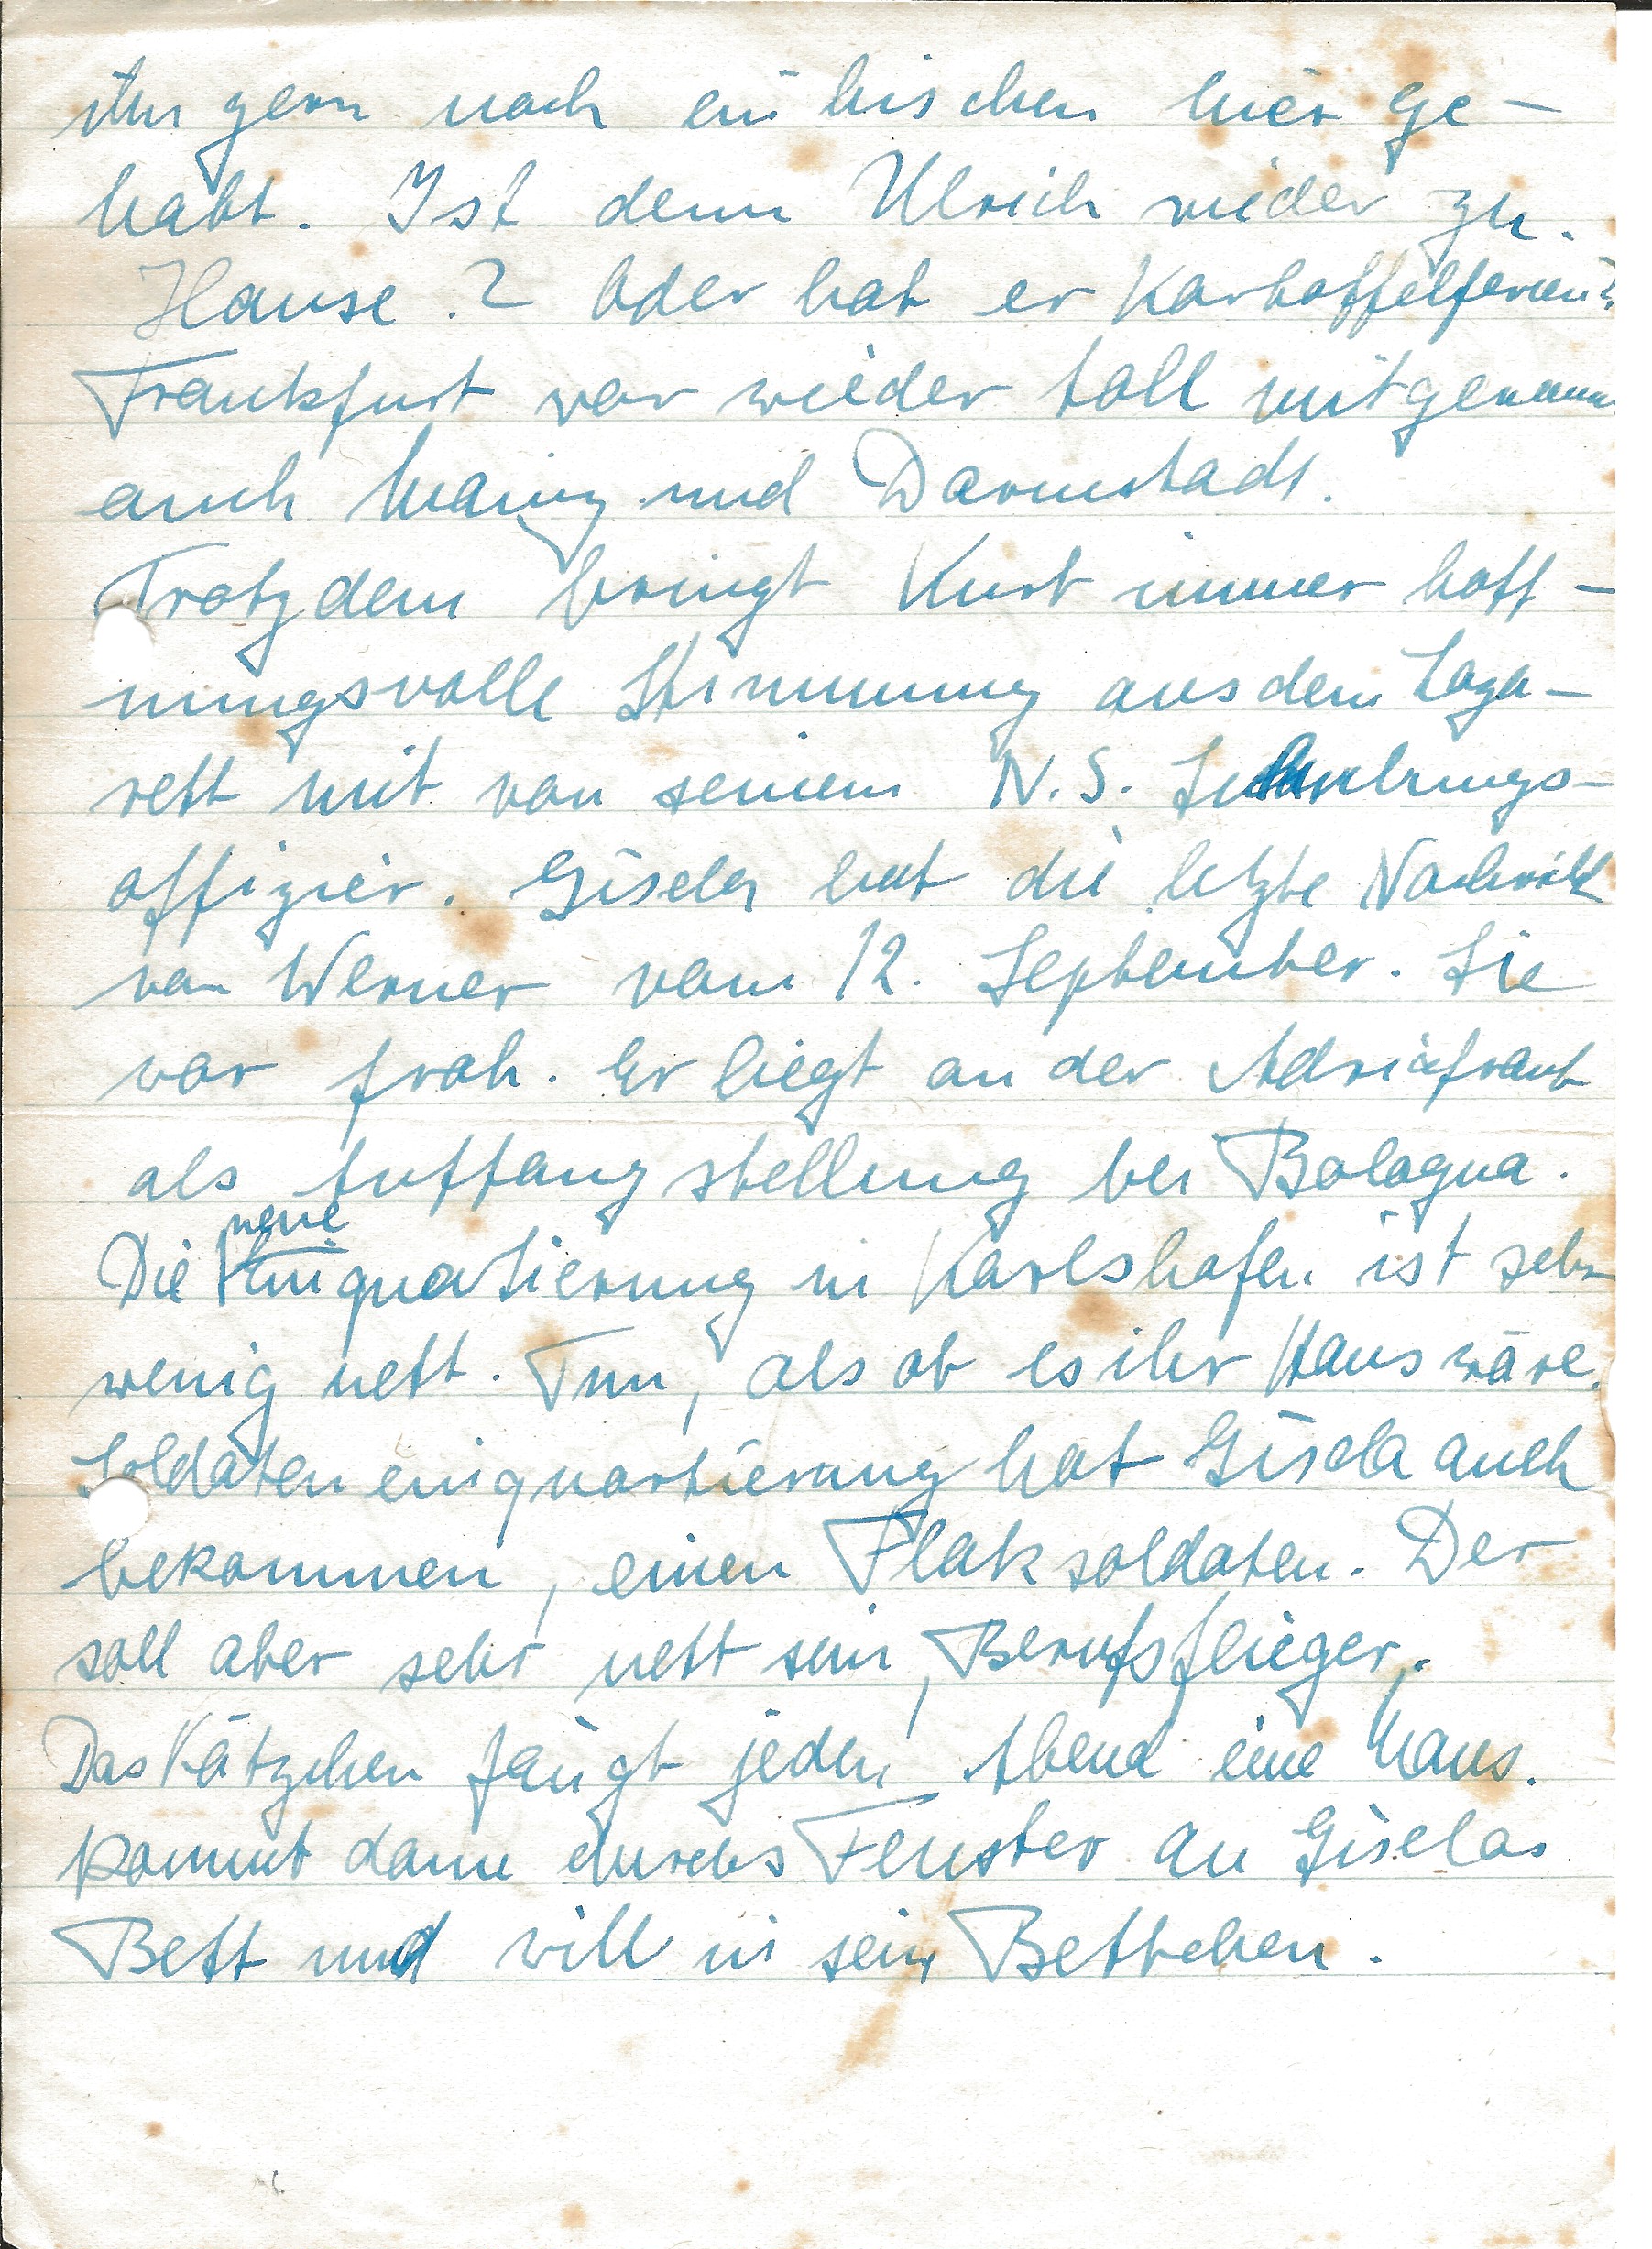 ihn gern noch ein bischen hier ge-
habt. Ist denn Ulrich wieder zu.
Hause.? Oder hat er Kartoffelferien?
Frankfurt war wieder toll mitgenomm
auch Mainz und Darmstadt.
Trotzdem bringt Kurt immer hoff-
nungsvolle Stimmung aus dem Laza-
rett mit von seinem N.S. Schulungs-
offizier. Gisela hat die letzte Nachricht
von Werner vom 12. September. Sie
war froh. Er liegt an der Adriafront
als Auffangstellung bei Bologna.
neue
Die Einquatierung in Karlshafen ist sehr
wenig nett. Tun, als ob es ihr Haus wäre.
Soldateneinquartierung hat Gisela auch
bekommen, einen Flaksoldaten. Der
soll aber sehr nett sein, Berufsflieger.
Das Kätzchen fängt jeden Abend eine Maus.
kommt dann durchs Fenster an Giselas
Bett und will in sein Bettchen.